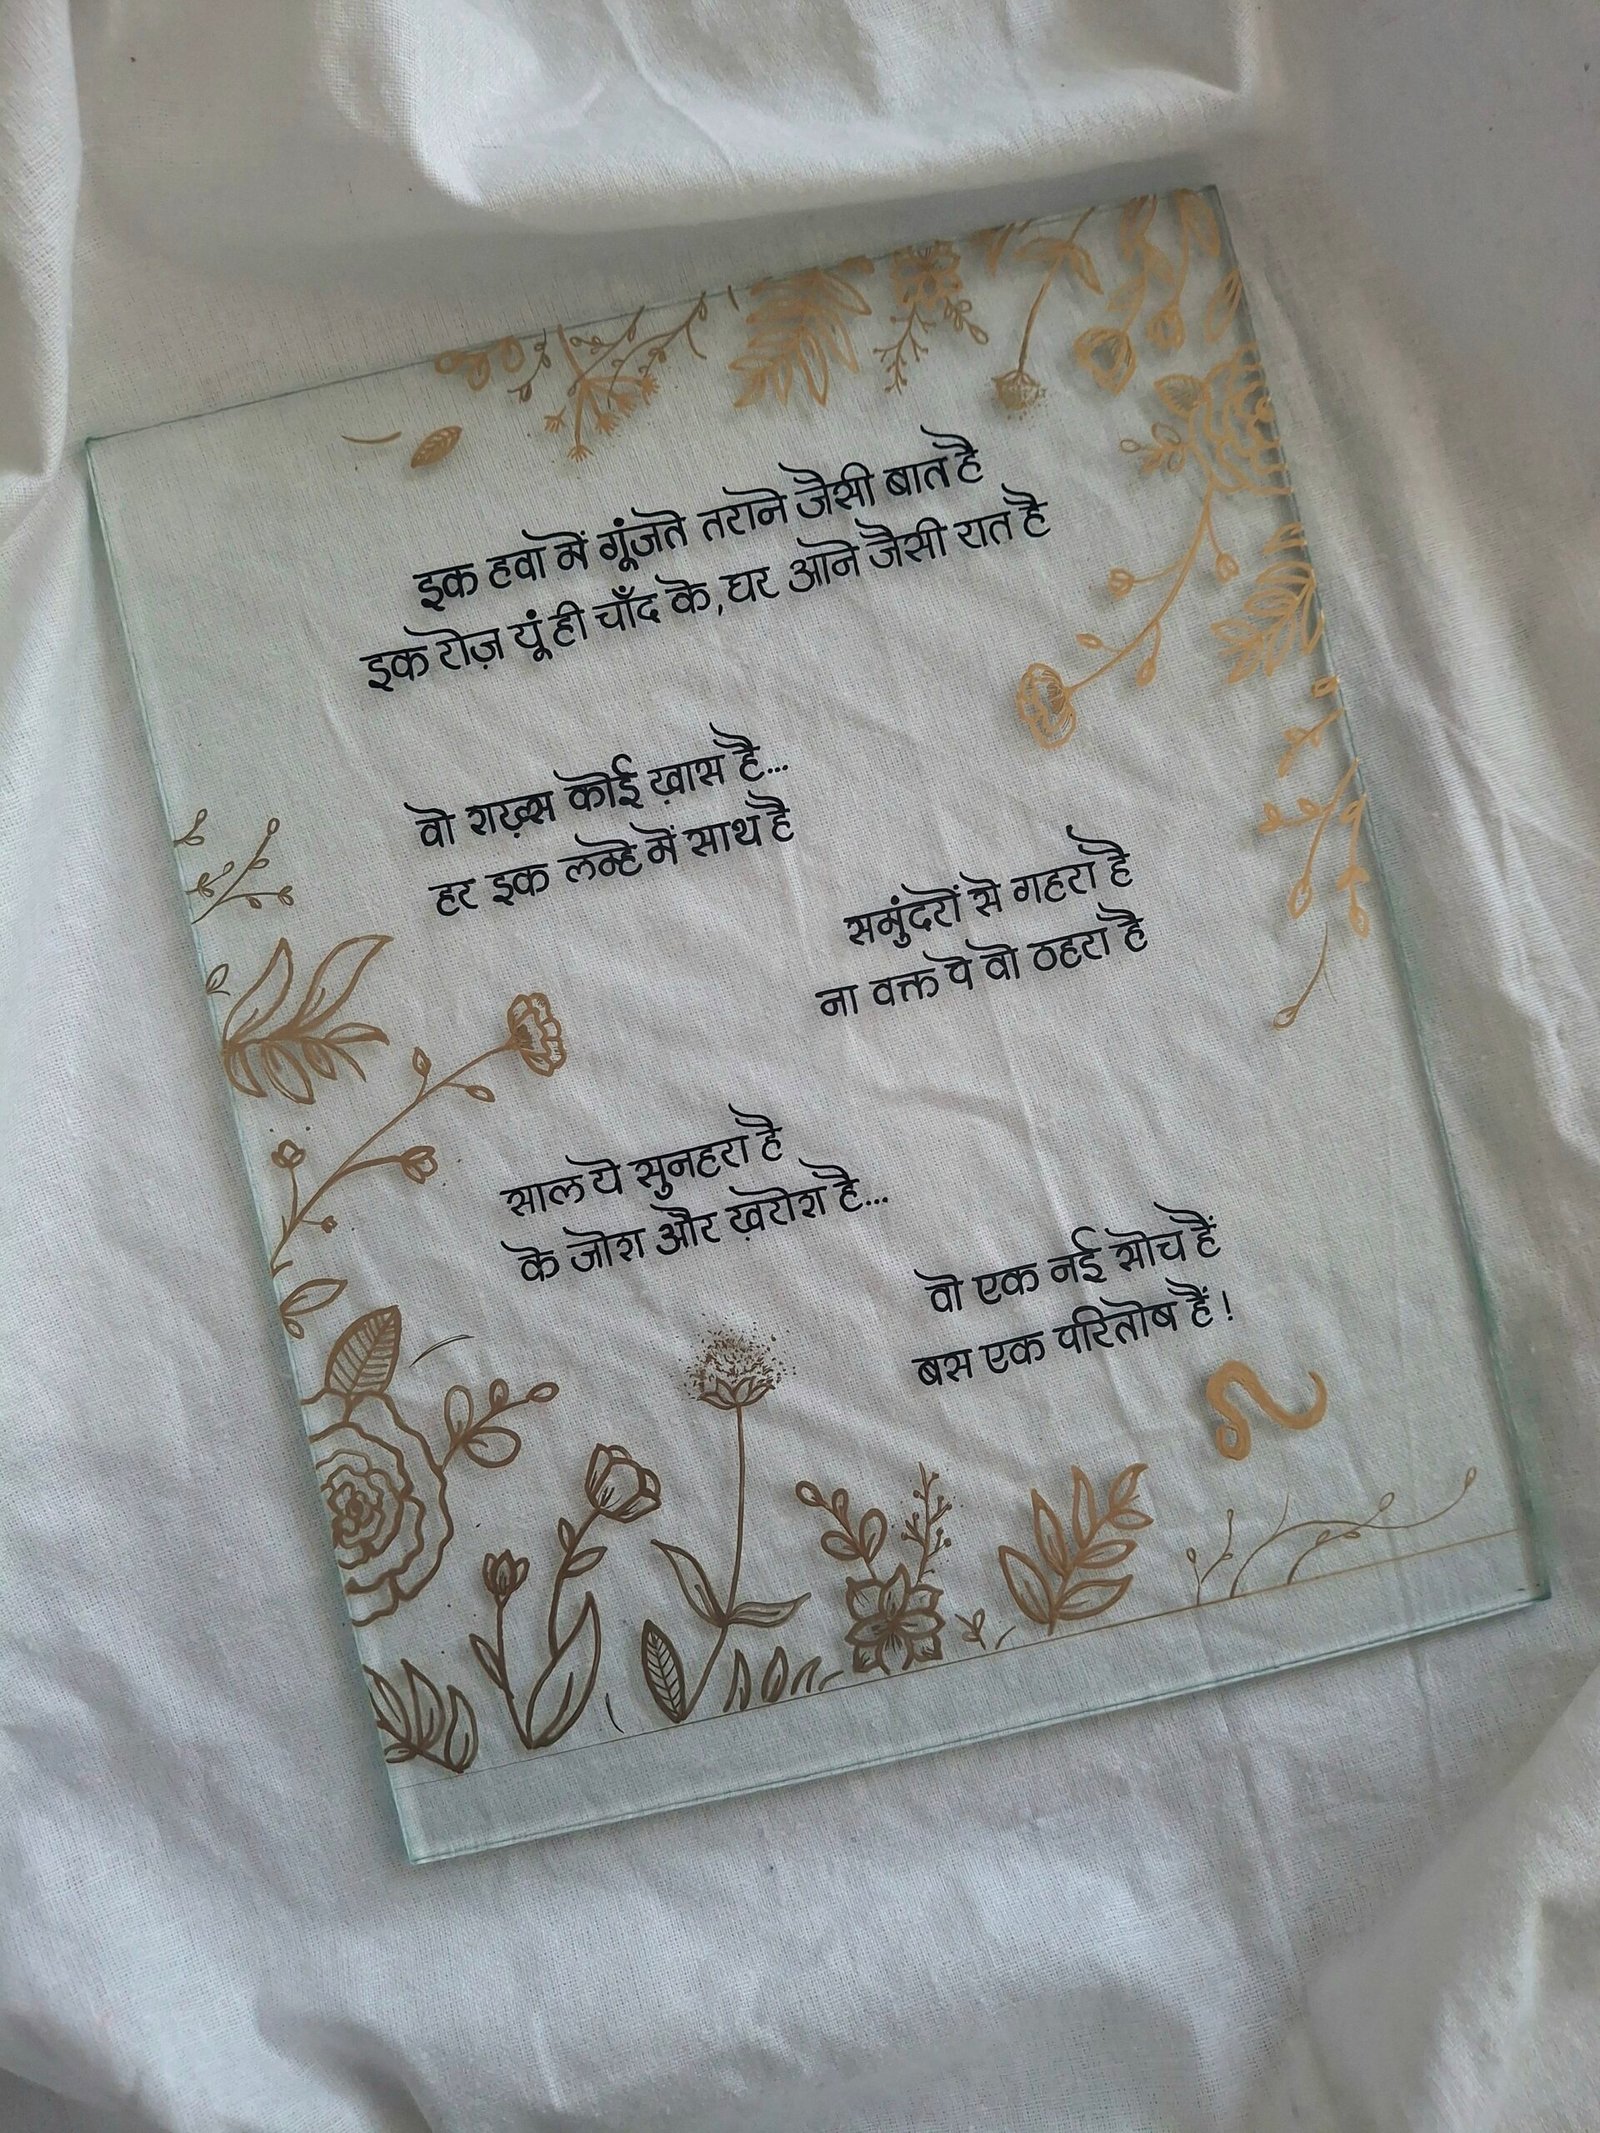 इक हवा में गूंजते तराने जैसी बात है
इक रोज़ यूं ही चाँद के, घर आने जैसी रात है
वो शख़्स कोई ख़ास है...
हर इक लम्हे में साथ है
समुंदरों से गहरा है
ना वक्त पे वो ठहरा है
साल ये सुनहरा है
के जोश और ख़रोश है...
वो एक नई सोच हैं
बस एक परितोष हैं !